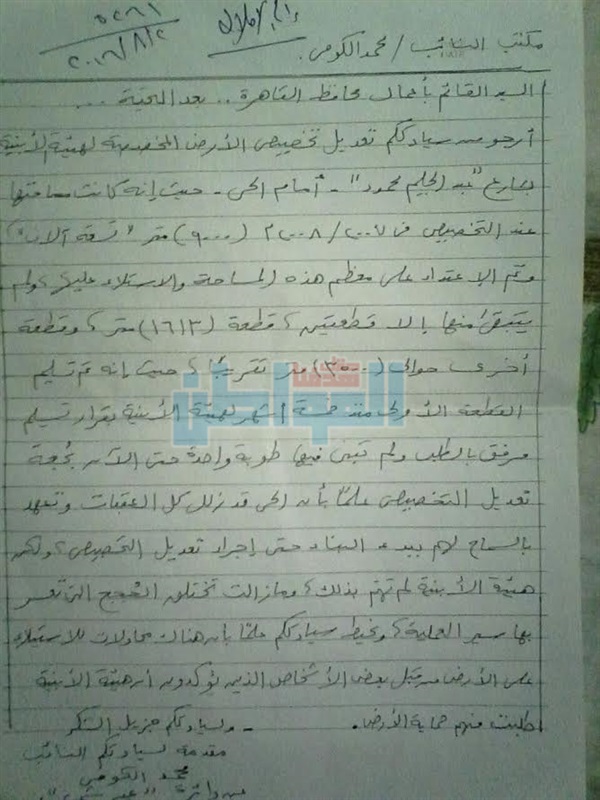 ٥٢٦١
٢٠١٦/٨/٢
مكتب النائب / محمد الكومى
السيد القائم بأعمال محافظ القاهرة .. بعد التحية ...
أرجو من سيادتكم تعديل تخصيص الأرض المخصصة لهيئة الأبنية
بشارع "عبد الحليم محمود" - أمام الحى - حيث إنه كانت مساحتها
عند التخصيص فى ٢٠٠٧ / ٢٠٠٨ (٩٠٠٠) متر "تسعة آلاف"
وتم الإعتداء على معظم هذه المساحة والاستيلاء عليها، ولم
يتبقى منها إلا قطعتين، قطعة (١٦١٣) متر، وقطعة
أخرى حوالى (٣٥٠٠) متر تقريبًا، حيث إنه تم تسليم
القطعة الأولى منذ خمسة أشهر لهيئة الأبنية بقرار تسليم
مرفق بالطلب ولم تبنى فيها طوبة واحدة حتى الآن بحجة
تعديل التخصيص علمًا بأن الحى قد زلل كل العقبات وتعهد
بالسماح لهم ببدء البناء حتى إجراء تعديل التخصيص، ولكن
هيئة الأبنية لم تهتم بذلك، ومازالت تختلق الحجج التى تعسر
بها سير العملية، ونحيط سيادتكم علمًا بأن هناك محاولات للاستيلاء
على الأرض من قبل بعض الأشخاص الذين يؤكدون أن هيئة الأبنية
طلبت منهم حماية الأرض. - ولسيادتكم جزيل الشكر
مقدمه لسيادتكم النائب
محمد الكومى
عن دائرة "عين شمس"
صدى
المواطن